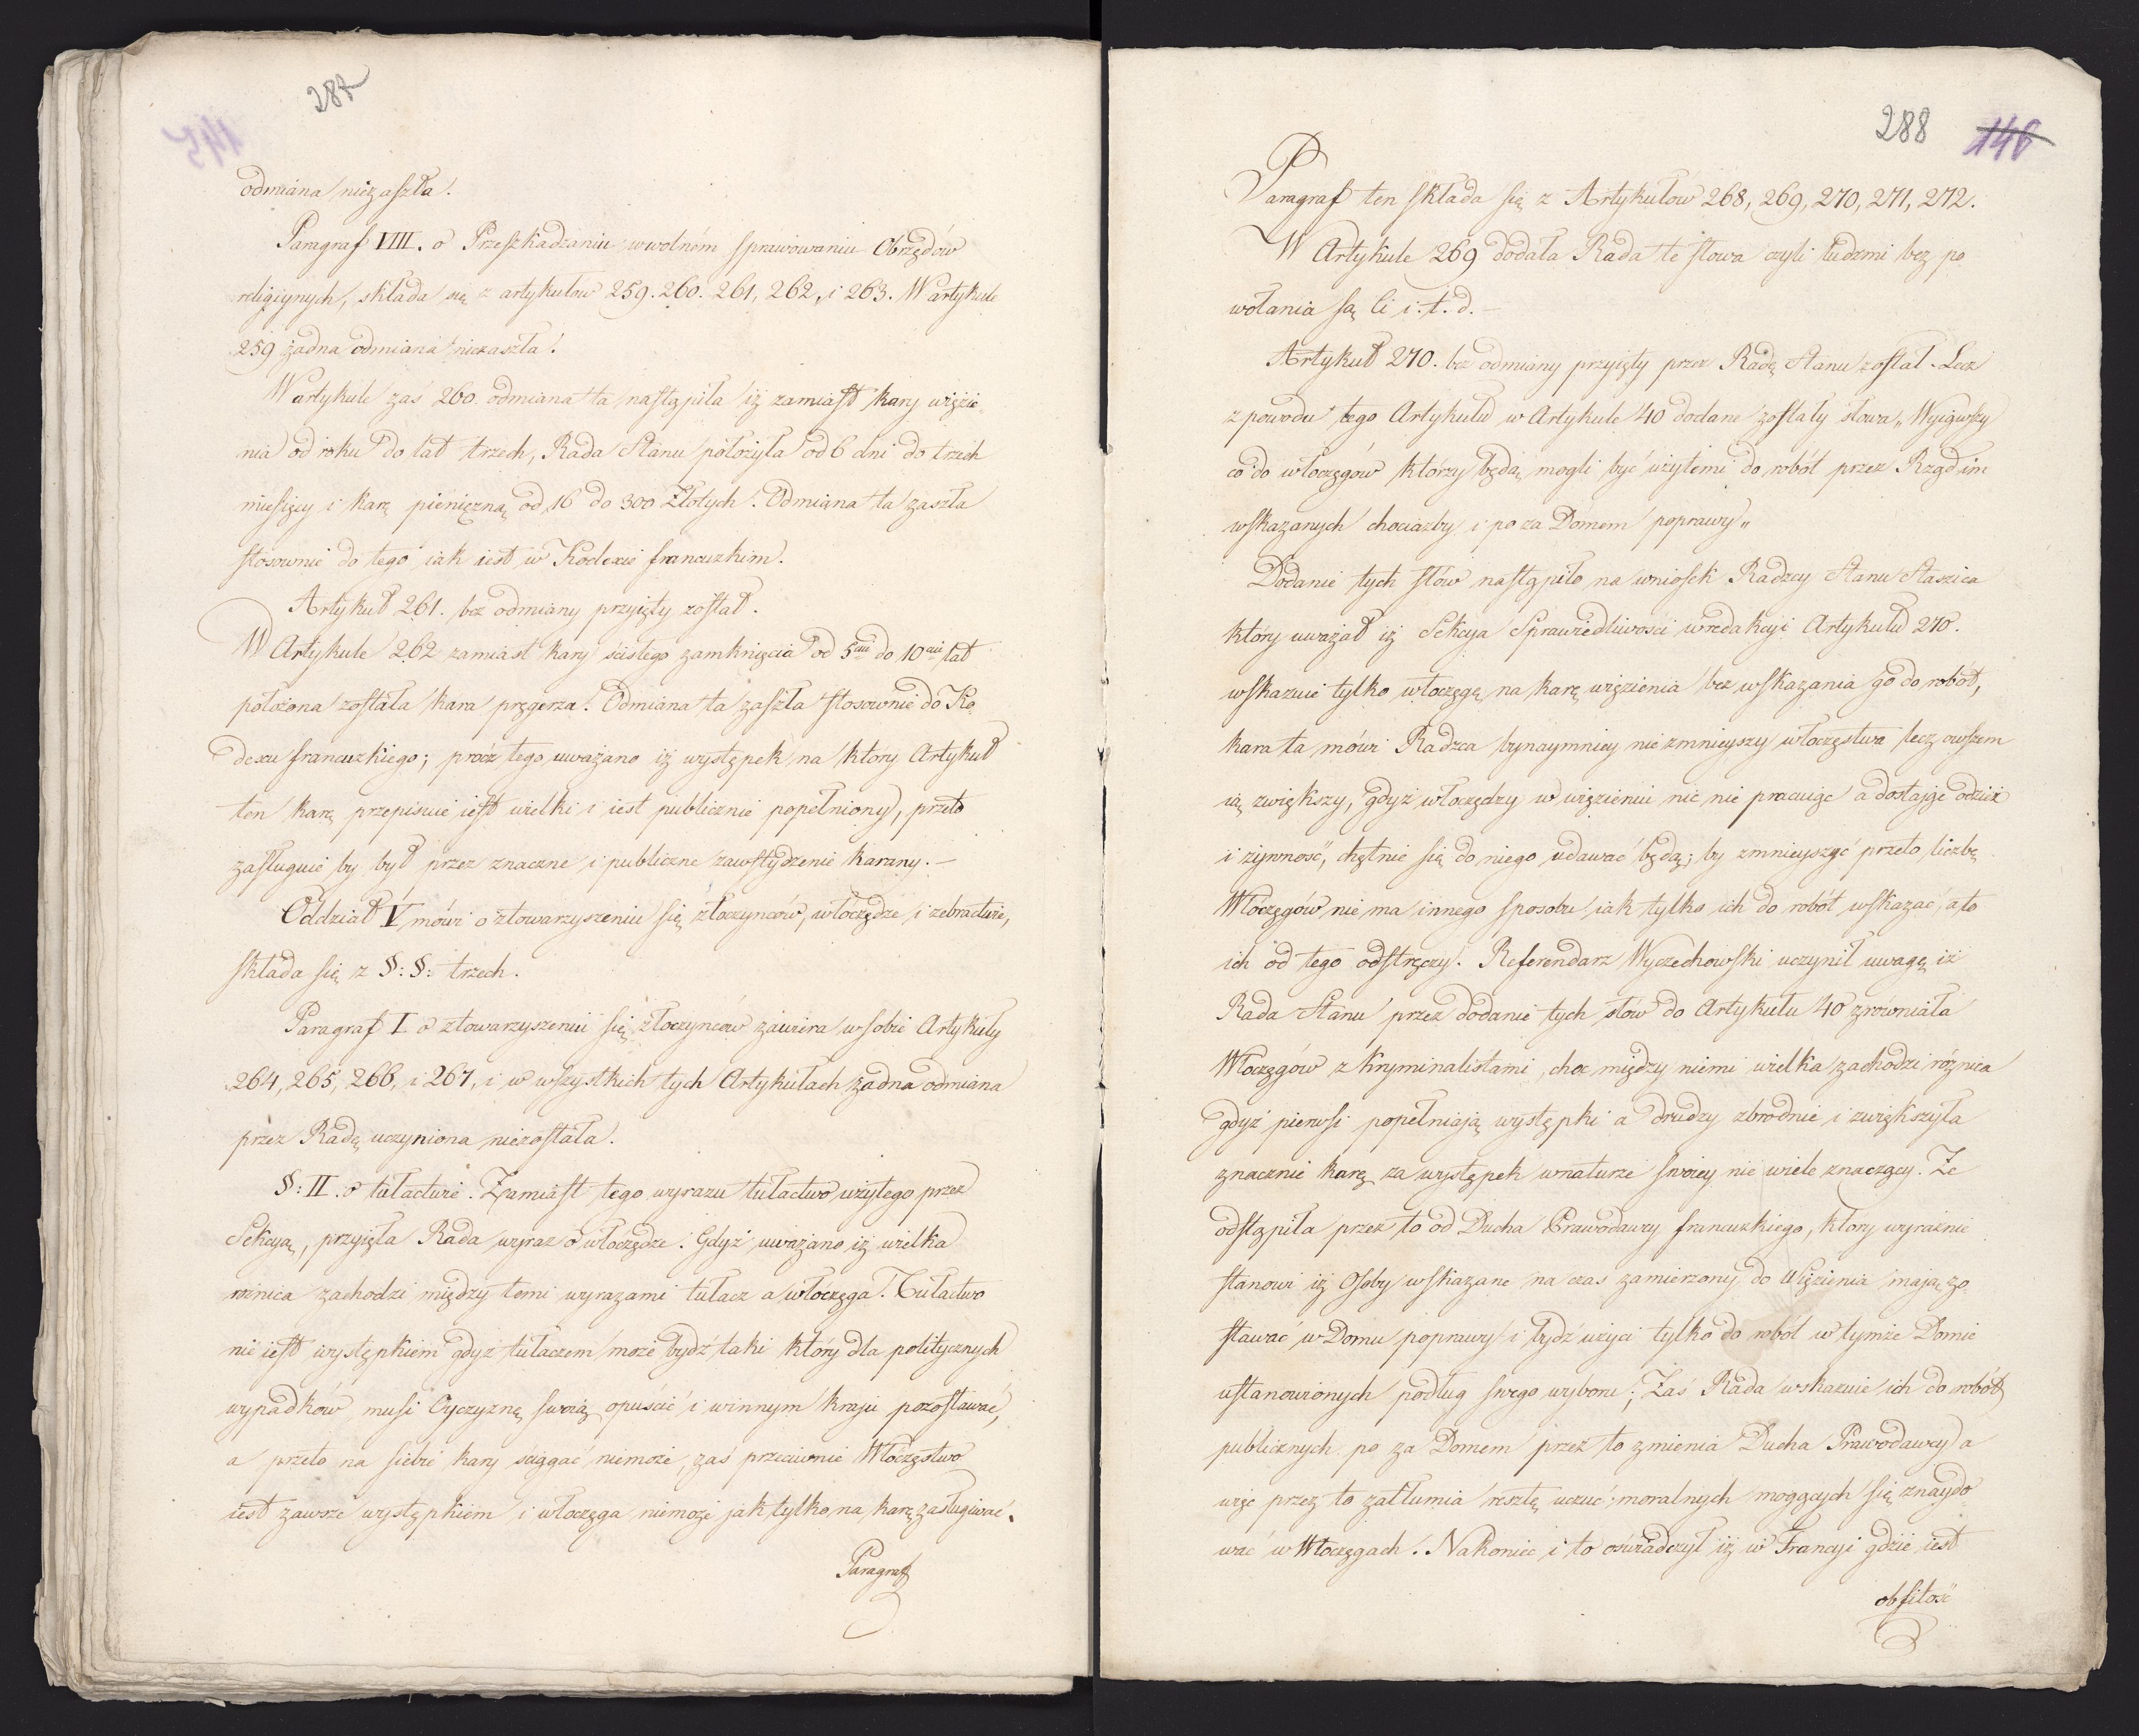 287
145
odmiana niezaszła.
Paragraf VIII. o Przeszkadzaniu w wolném sprawowaniu Obrzędów
religiynych, składa się z artykułow 259. 260. 261, 262, i 263. W artykule
259 żadna odmiana niezaszła.
W artykule zaś 260. odmiana ta nastąpiła iż zamiast kary więzie
nia od roku do lat trzech, Rada Stanu położyła od 6 dni do trzech
miesięcy i karę pieniężną od 16 do 300 Złotych. Odmiana ta zaszła
stosownie do tego iak iest w Kodexie francuzkim.
Artykuł 261. bez odmiany przyięty został.
W Artykule 262 zamiast kary ścisłego zamknięcia od 5ciu do 10ciu lat
położona została kara pręgerza. Odmiana ta zaszła stosownie do Ko
dexu francuzkiego; prócz tego uważano iż występek na który Artykuł
ten karę przepisuie iest wielki i iest publicznie popełniony, przeto
zasługuie by był przez znaczne i publiczne zawstydzenie karany. –
Oddział V mówi o ztowarzyszeniu się złoczyńców, włóczędze i żebractwie,
składa się z §: §: trzech.
Paragraf I. o ztowarzyszeniu się złoczyńców zawiera w sobie Artykuły
264, 265, 266, i 267, i w wszystkich tych Artykułach żadna odmiana
przez Radę uczyniona niezostała.
§: II. o tułactwie. Zamiast tego wyrazu tułactwo użytego przez
Sekcyą, przyięła Rada wyraz o włóczędze. Gdyż uważano iż wielka
róźnica zachodzi między temi wyrazami tułacz a włóczęga. Tułactwo
nie iest występkiem gdyż tułaczem może bydź taki który dla politycznych
wypadków musi Oyczyznę swoią opuścić i w innym kraju pozostawać,
a przeto na siebie kary ściągać niemoże, zaś przeciwnie Włóczęstwo
iest zawsze występkiem i włoczęga niemoże jak tylko na karę zasługiwać.
Paragraf
288
146
Paragraf ten składa się z Artykułow 268, 269, 270, 271, 272.
W Artykule 269 dodała Rada te słowa czyli ludzmi bez po
wołania są Ci i. t. d. –
Artykuł 270. bez odmiany przyięty przez Radę Stanu został. Lecz
z powodu tego Artykułu w Artykule 40 dodane zostały słowa „Wyiąwszy
co do włoczęgów którzy będą mogli być użytemi do robót przez Rząd im
wskazanych chociażby i po za Domem poprawy„
Dodanie tych słów nastąpiło na wniosek Radzcy Stanu Staszica
który uważał iż Sekcya Sprawiedliwości w redakcyi Artykułu 270.
wskazuie tylko włoczęgę na karę więzienia bez wskazania go do robót,
kara ta mówi Radzca bynaymniey nie zmnieyszy włoczęstwa lecz owszem
ią zwiększy, gdyż włoczędzy w więzieniu nic nie pracuiąc a dostając odzież
i żywność, chętnie się do niego udawać będą; by zmnieyszyć przeto liczbę
Włóczęgów nie ma innego sposobu iak tylko ich do robót wskazać, a to
ich od tego odstręczy. Referendarz Wyczechowski uczynił uwagę iż
Rada Stanu przez dodanie tych słów do Artykułu 40 zrówniała
Włóczęgów z kryminalistami, choc między niemi wielka zachodzi róznica
gdyż pierwsi popełniają występki a drudzy zbrodnie i zwiększyła
znacznie karę za występek w naturze swoiey nie wiele znaczący. Że
odstąpiła przez to od Ducha Prawodawcy francuzkiego, który wyraźnie
stanowi iż Osoby wskazane na czas zamierzony do Więzienia mają zo
stawać w Domu poprawy i bydź użyci tylko do robot w tymże Domie
ustanowionych podług swego wyboru; Zaś Rada wskazuie ich do robót
publicznych po za Domem przez to zmienia Ducha Prawodawcy a
więc przez to zatłumia resztę uczuć moralnych mogących się znaydo
wać w Włoczęgach. Nakoniec i to oświadczył iż w Francyi gdzie iest
obfitość